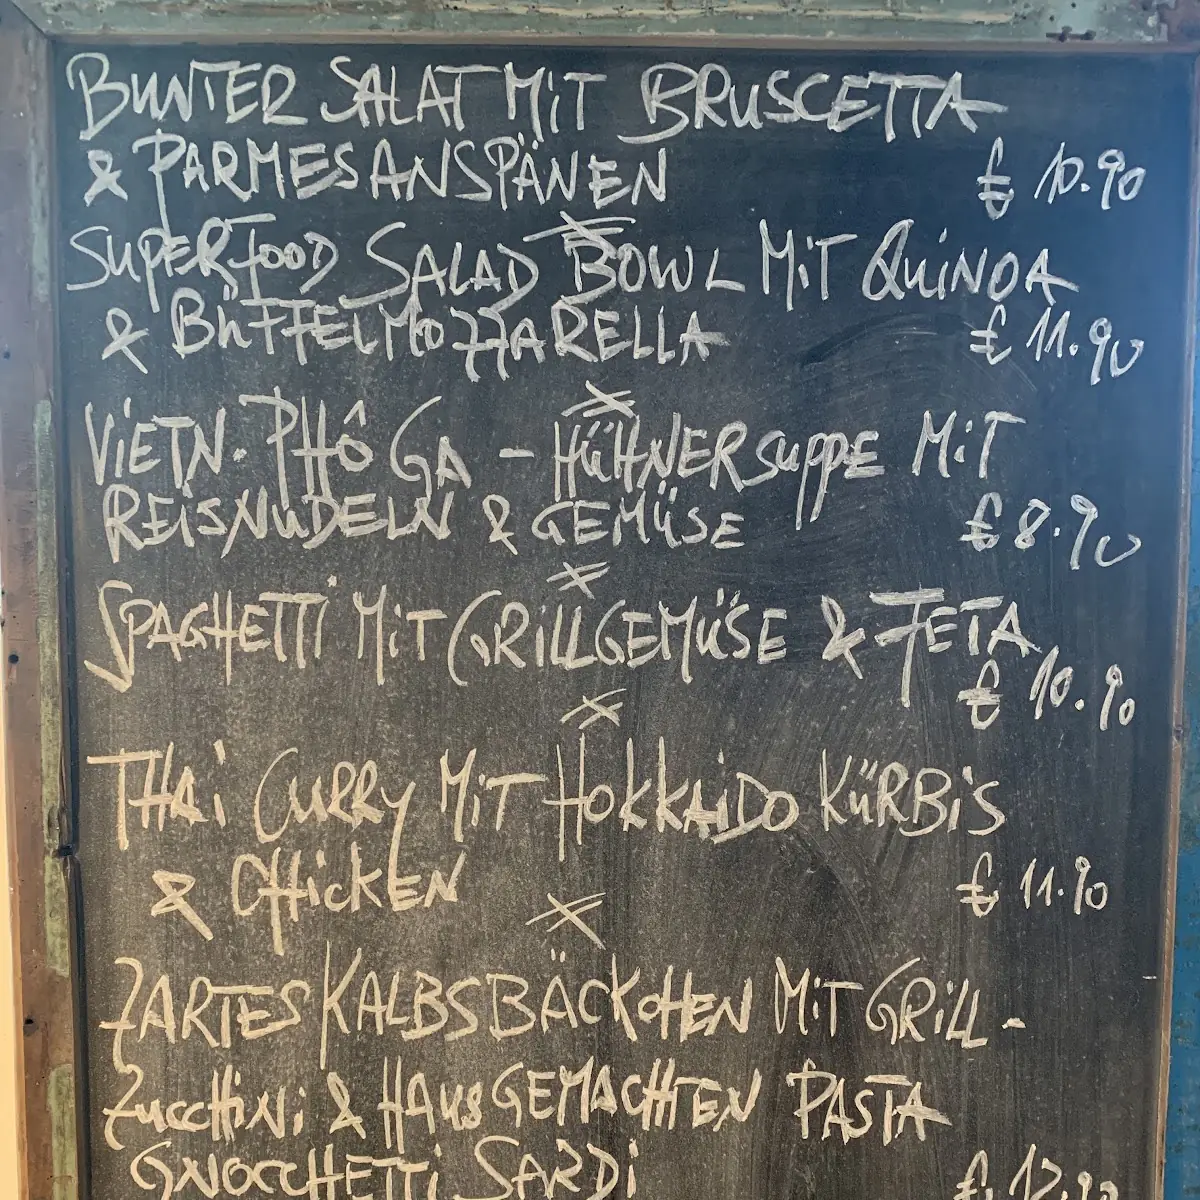 BUNTER SALAT MiT BRUSCETTA
& PARMESANSPÄNEN € 10.90
SUPERFOOD SALAD BOWL MiT QUiNOA
& BüFFELMOZZARELLA € 11.90
ViETN. PHÔ GA - HüHNERSUPPE MiT
REiSNUDELN & GEMüSE € 8.90
SPAGHETTi MiT GRiLLGEMüSE & FETA
€ 10.90
THAi CURRY MiT HOKKAiDO KüRBiS
& CHiCKEN € 11.90
ZARTES KALBSBÄCKCHEN MiT GRiLL-
ZUCCHiNi & HAUSGEMACHTEN PASTA
GNOCCHETTi SARDi €